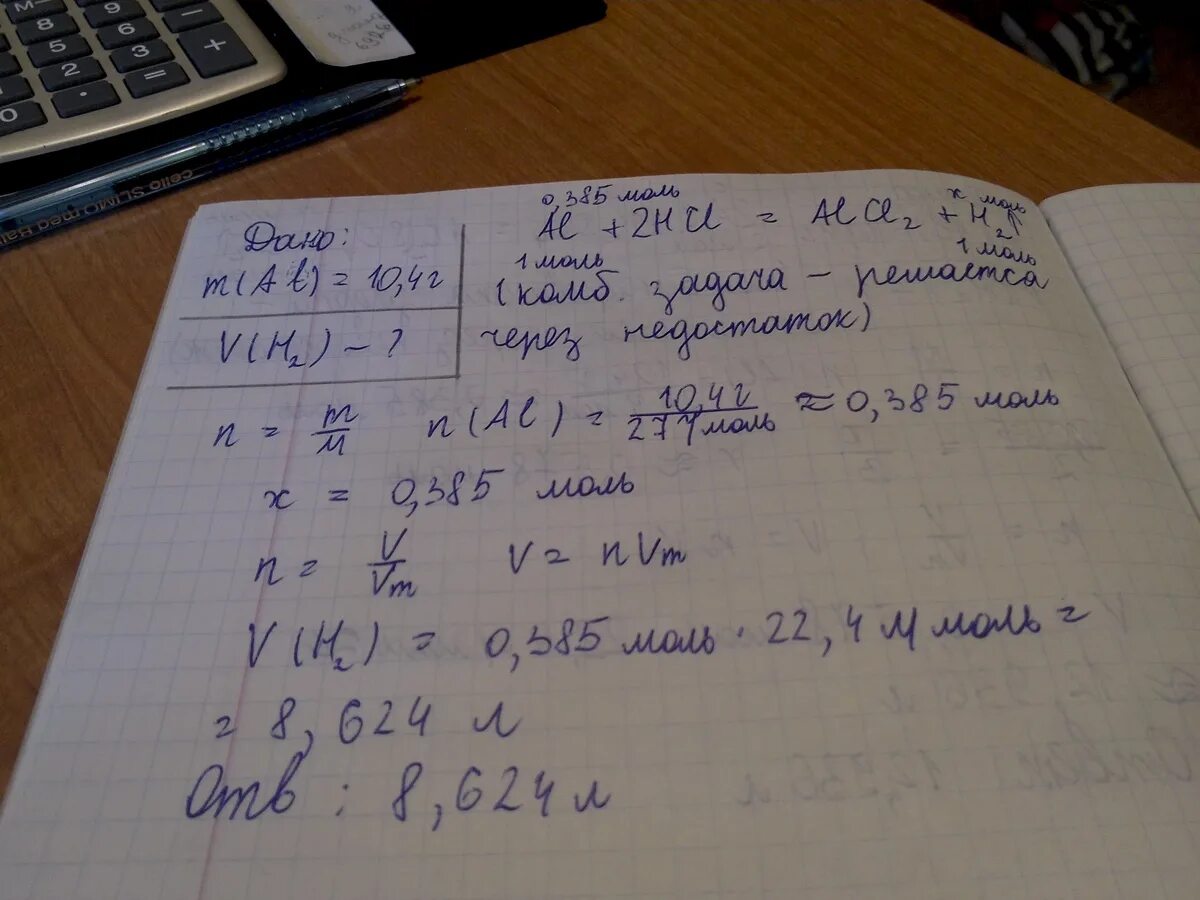 M–
8
9
–
5
6
+
2
3
0
.
=
cello SLIMO
Дано:
m(Al) = 10,4г
V(H₂) – ?
0,385 моль
x моль
Al + 2HCl = AlCl₂ + H₂↑
1 моль
1 моль
(комб. задача – решается
через недостаток)
n = m/M n(Al) = 10,4г / 27г/моль ≈ 0,385 моль
x = 0,385 моль
n = V/Vm V = nVm
V(H₂) = 0,385 моль · 22,4 л/моль =
= 8,624 л
Отв : 8,624 л